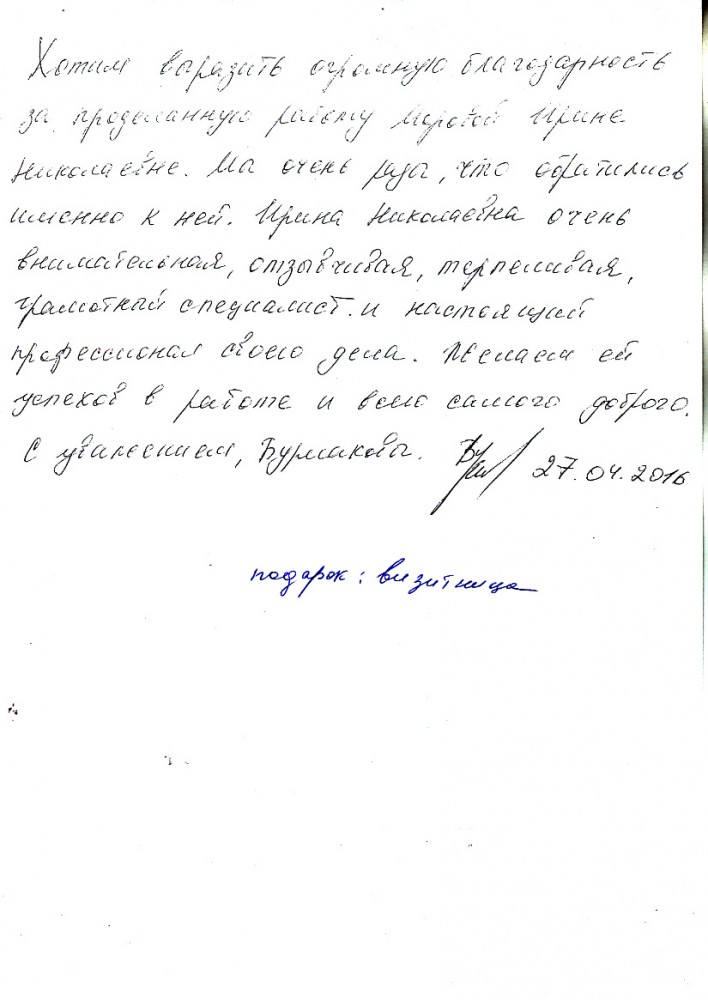 Хотим выразить огромную благодарность
за проделанную работу Моровой Ирине
Николаевне. Мы очень рады, что обратились
именно к ней. Ирина Николаевна очень
внимательная, отзывчивая, терпеливая,
грамотный специалист и настоящий
профессионал своего дела. Желаем ей
успехов в работе и всего самого доброго.
С уважением, Бурмаковы. 27.04.2016
подарок: визитница